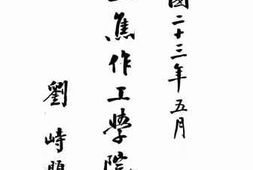 國二十三年五月
焦作工學院
劉峙題